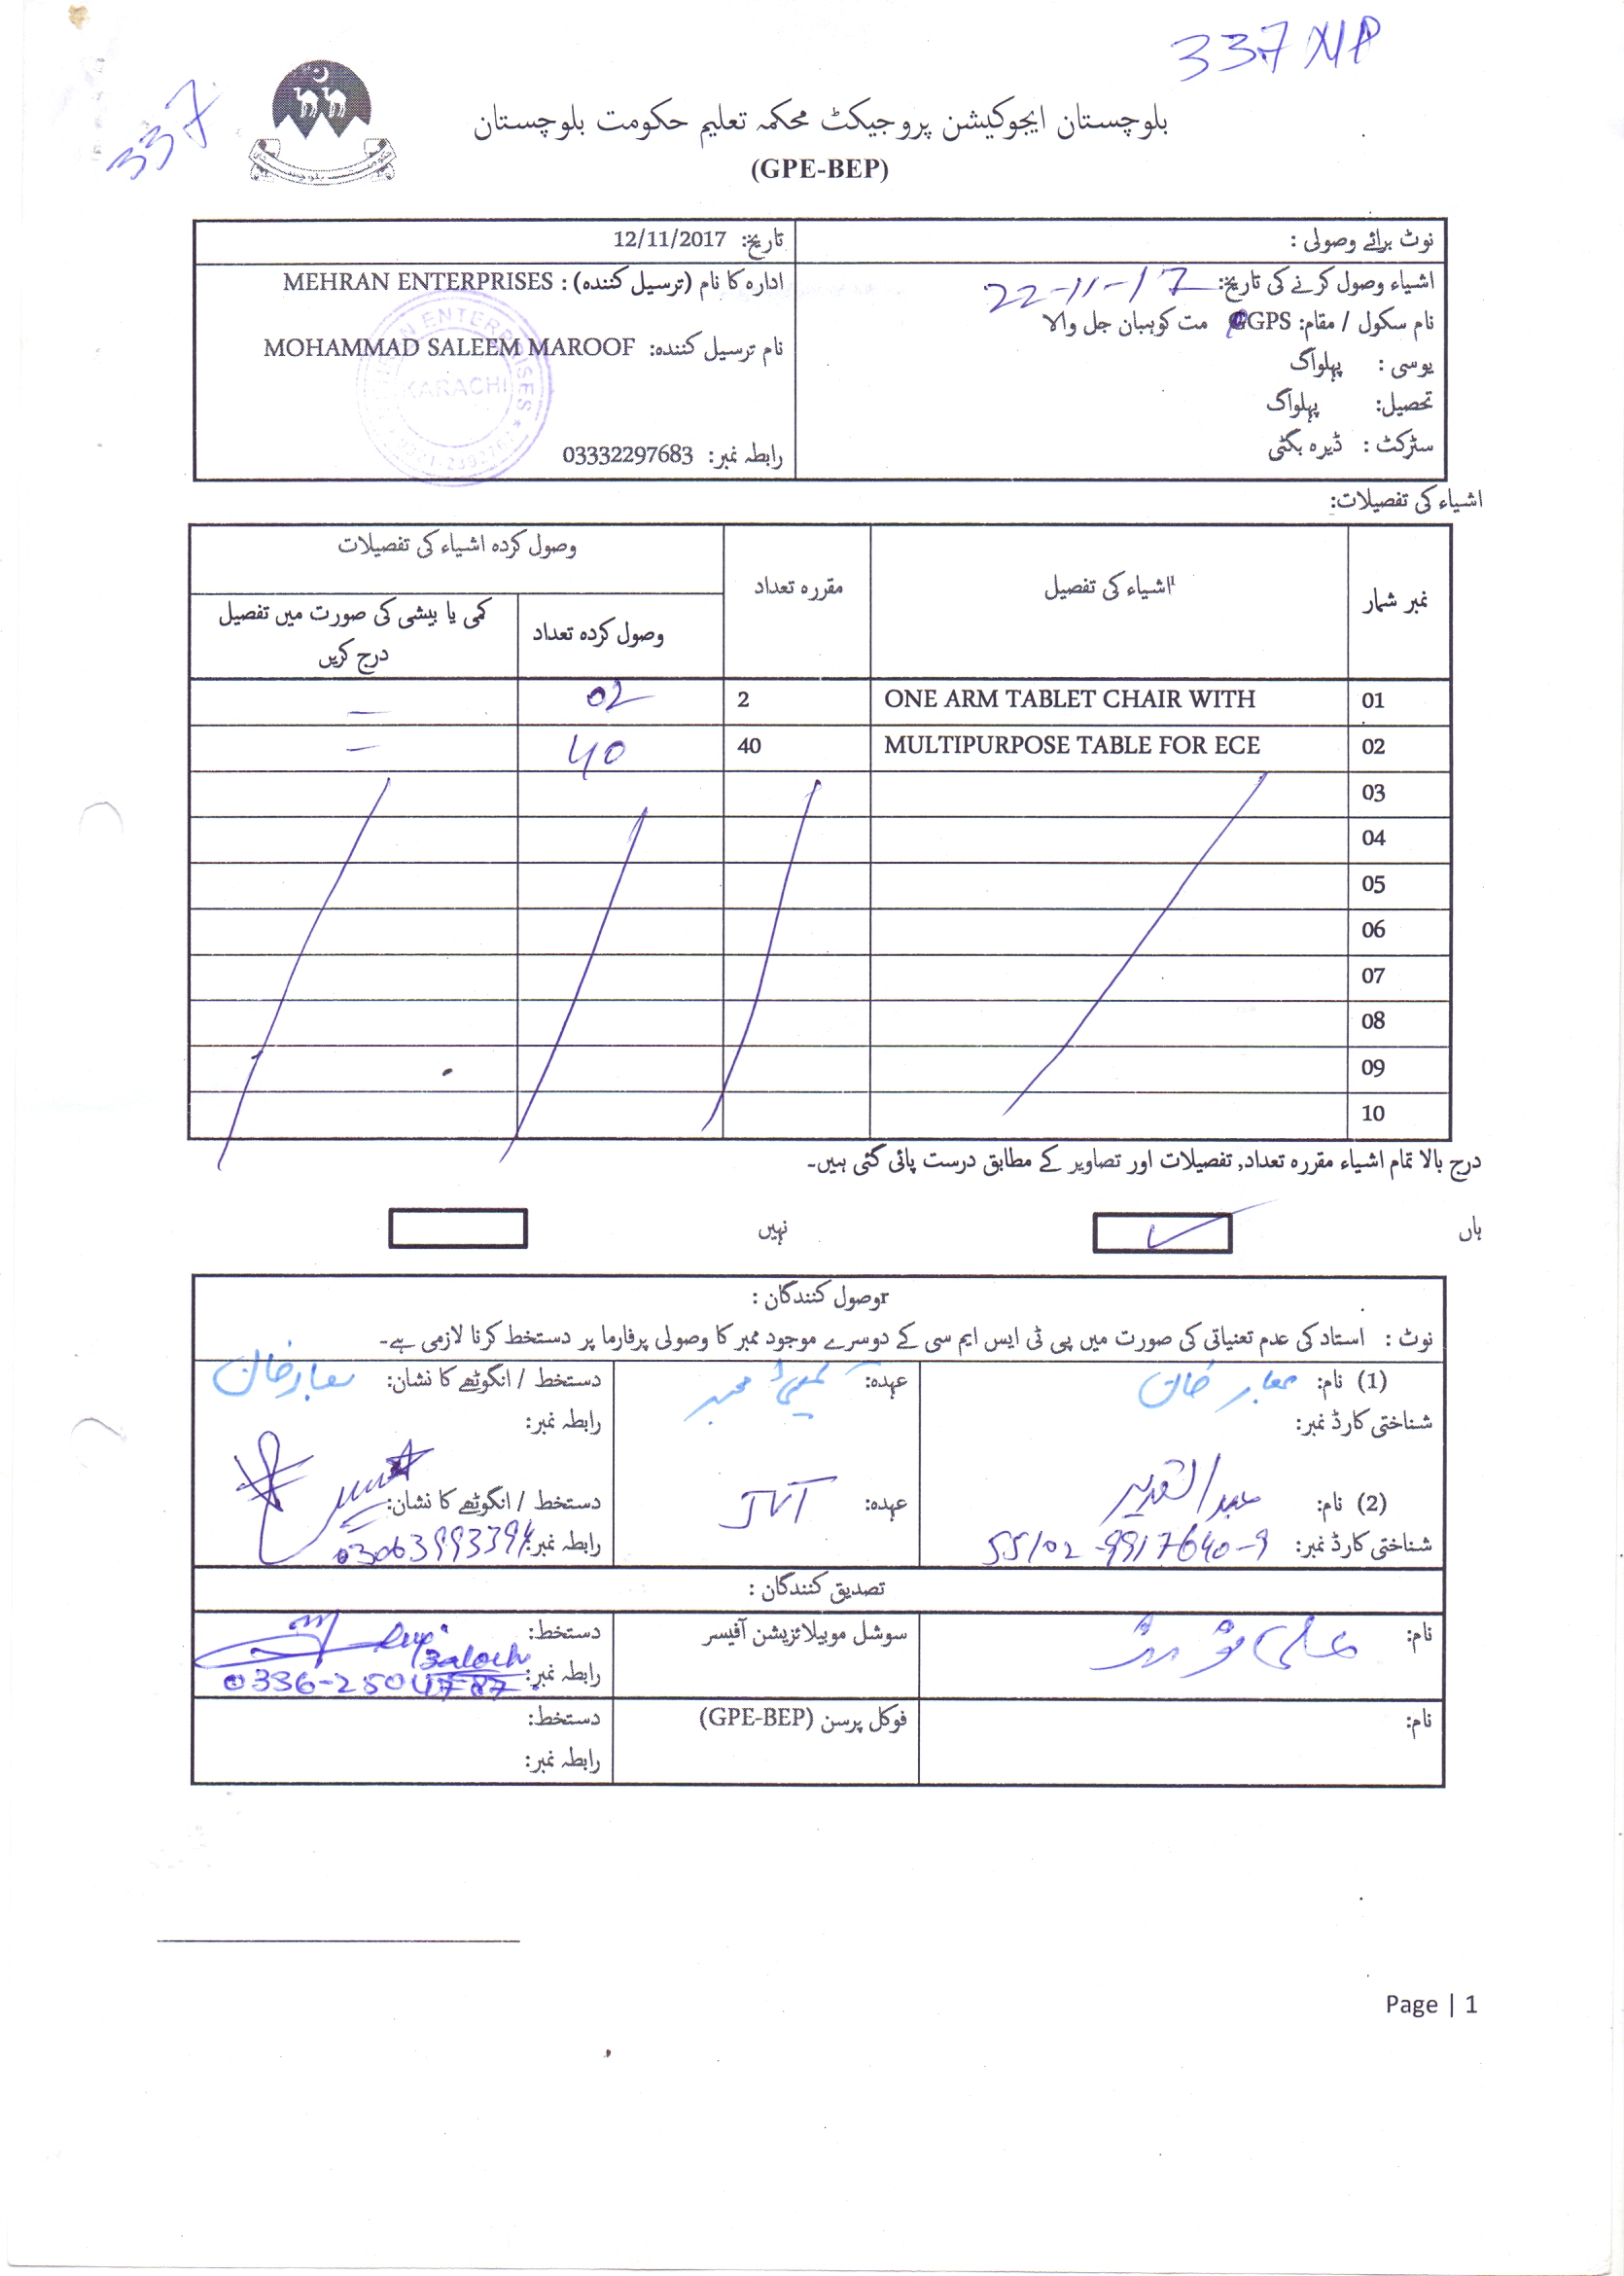 337 NP
337
بلوچستان ایجوکیشن پروجیکٹ محکمہ تعلیم حکومت بلوچستان
(GPE-BEP)
نوٹ برائے وصولی :
اشیاء وصول کرنے کی تاریخ: 22-11-17
نام سکول / مقام: GGPS مت کوہبان جل والا
یوسی : پہلواگ
تحصیل: پہلواگ
سٹرکٹ : ڈیرہ بگٹی
تاریخ: 12/11/2017
ادارہ کا نام (ترسیل کنندہ) : MEHRAN ENTERPRISES
نام ترسیل کنندہ: MOHAMMAD SALEEM MAROOF
رابطہ نمبر: 03332297683
ENTERPRISES
KARACHI
اشیاء کی تفصیلات:
نمبر شمار
اشیاء کی تفصیل
مقررہ تعداد
وصول کردہ اشیاء کی تفصیلات
وصول کردہ تعداد
کمی یا بیشی کی صورت میں تفصیل
درج کریں
01 ONE ARM TABLET CHAIR WITH 2 02 –
02 MULTIPURPOSE TABLE FOR ECE 40 40 –
03
04
05
06
07
08
09
10
درج بالا تمام اشیاء مقررہ تعداد, تفصیلات اور تصاویر کے مطابق درست پائی گئی ہیں۔
ہاں ✓ نہیں
rوصول کنندگان :
نوٹ : استاد کی عدم تعنیاتی کی صورت میں پی ٹی ایس ایم سی کے دوسرے موجود ممبر کا وصولی پرفارما پر دستخط کرنا لازمی ہے۔
(1) نام: خان عہدہ: ممبر دستخط / انگوٹھے کا نشان: خان
شناختی کارڈ نمبر: رابطہ نمبر:
(2) نام: عبدالقدیر عہدہ: JVT دستخط / انگوٹھے کا نشان:
شناختی کارڈ نمبر: 55102-9917640-9 رابطہ نمبر: 03063993394
تصدیق کنندگان :
نام: سوشل موبیلائزیشن آفیسر دستخط: Baloch
رابطہ نمبر: 0336-2504787
نام: فوکل پرسن (GPE-BEP) دستخط:
رابطہ نمبر:
Page | 1